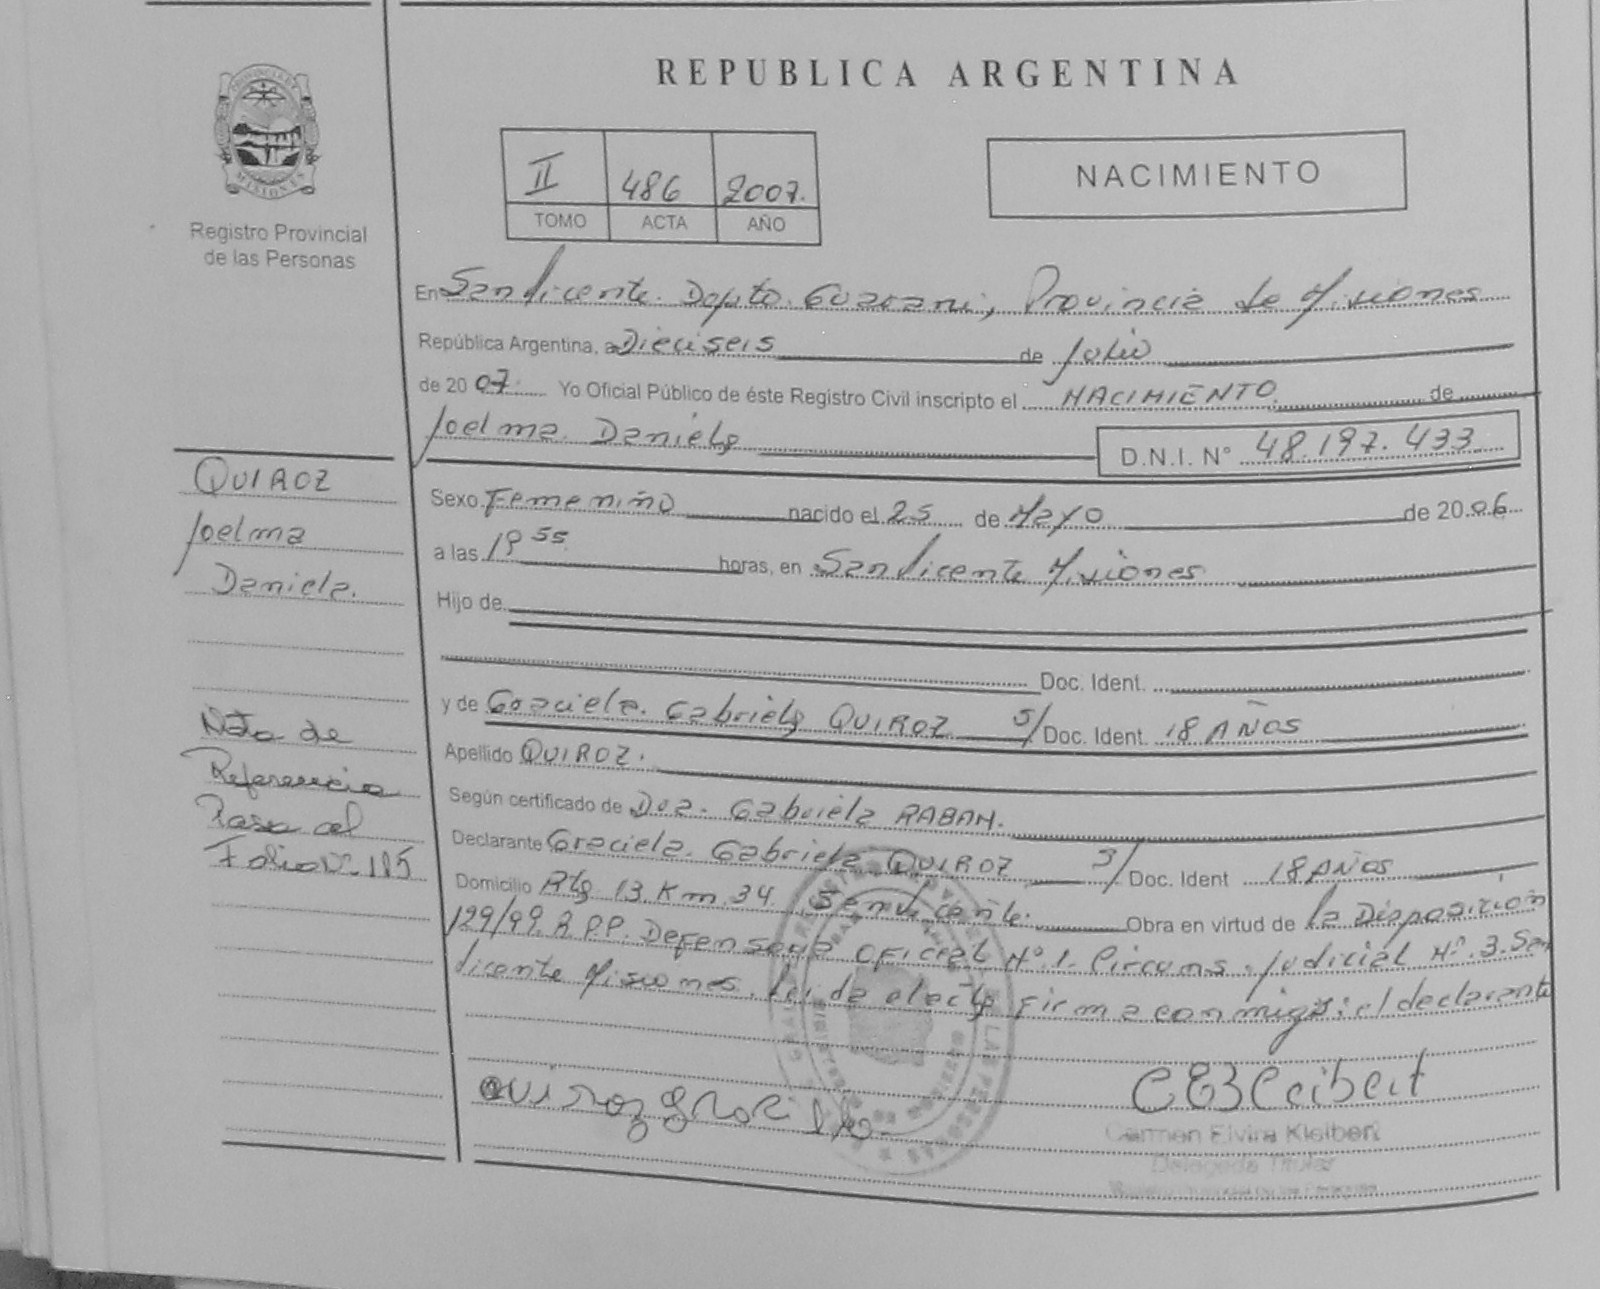 REPUBLICA ARGENTINA
PROVINCIA DE
MISIONES
Registro Provincial
de las Personas
II 486 2007.
TOMO ACTA AÑO
NACIMIENTO
En San Vicente. Depto. Guarani, Provincia de Misiones
República Argentina, a Dieciseis de Julio
de 20 07. Yo Oficial Público de éste Registro Civil inscripto el NACIMIENTO. de
Joelma Daniela D.N.I. N° 48.197.433
Sexo Femenino nacido el 25 de Mayo de 20 06
a las 19 55 horas, en San Vicente Misiones
Hijo de
Doc. Ident.
y de Graciela. Gabriela QUIROZ S/ Doc. Ident. 18 AÑOS
Apellido QUIROZ.
Según certificado de Dra. Gabriela RABAN.
Declarante Graciela. Gabriela QUIROZ S/ Doc. Ident 18 AÑOS
Domicilio Rta 13 Km 34. San Vicente. Obra en virtud de la Disposición
129/99. R.P.P. Defensoria Oficial N°.1. Circuns. Judicial N°.3. San
Vicente Misiones. Leida el acta firma conmigo: el declarante
QUIROZ
Joelma
Daniela.
Nota de
Referencia
Pasa al
Folio N° 115
Carmen Elvira Kleibert
Delegada Titular